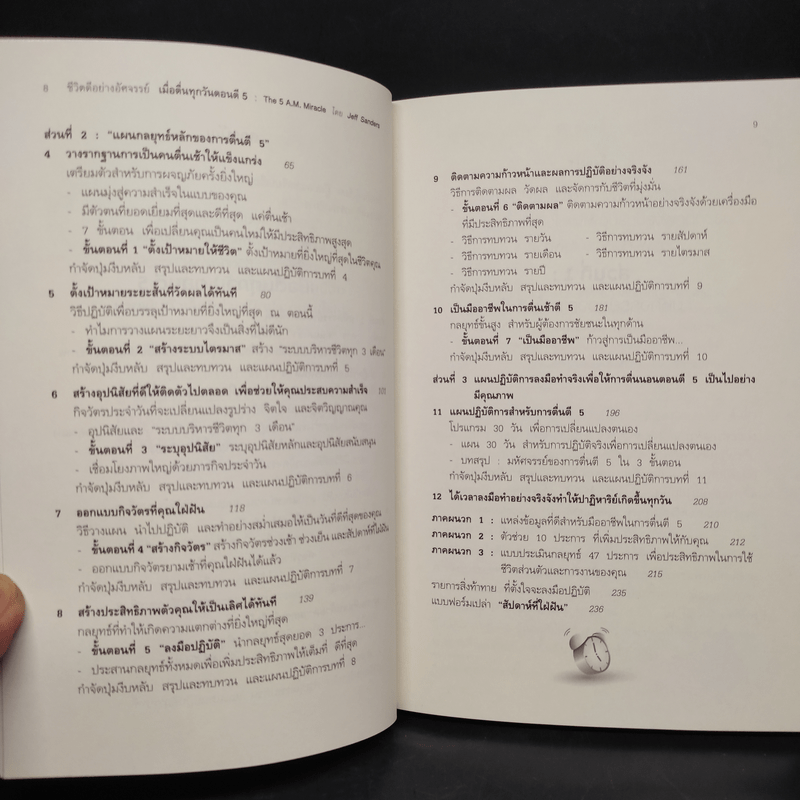 8 ชีวิตดีอย่างอัศจรรย์ เมื่อตื่นทุกวันตอนตี 5 : The 5 A.M. Miracle โดย Jeff Sanders
ส่วนที่ 2 : "แผนกลยุทธ์หลักของการตื่นตี 5"
4 วางรากฐานการเป็นคนตื่นเช้าให้แข็งแกร่ง 65
เตรียมตัวสำหรับการผจญภัยครั้งยิ่งใหญ่
- แผนมุ่งสู่ความสำเร็จในแบบของคุณ
- มีตัวตนที่ยอดเยี่ยมที่สุดและดีที่สุด แค่ตื่นเช้า
- 7 ขั้นตอน เพื่อเปลี่ยนคุณเป็นคนใหม่ให้มีประสิทธิภาพสูงสุด
- ขั้นตอนที่ 1 "ตั้งเป้าหมายให้ชีวิต" ตั้งเป้าหมายที่ยิ่งใหญ่ที่สุดในชีวิตคุณ
กำจัดปุ่มงีบหลับ สรุปและทบทวน และแผนปฏิบัติการบทที่ 4
5 ตั้งเป้าหมายระยะสั้นที่วัดผลได้ทันที 80
วิธีปฏิบัติเพื่อบรรลุเป้าหมายที่ยิ่งใหญ่ที่สุด ณ ตอนนี้
- ทำไมการวางแผนระยะยาวจึงเป็นสิ่งที่ไม่ดีนัก
- ขั้นตอนที่ 2 "สร้างระบบไตรมาส" สร้าง "ระบบบริหารชีวิตทุก 3 เดือน"
กำจัดปุ่มงีบหลับ สรุปและทบทวน และแผนปฏิบัติการบทที่ 5
6 สร้างอุปนิสัยที่ดีให้ติดตัวไปตลอด เพื่อช่วยให้คุณประสบความสำเร็จ
กิจวัตรประจำวันที่จะเปลี่ยนแปลงรูปร่าง จิตใจ และจิตวิญญาณคุณ
- อุปนิสัยและ "ระบบบริหารชีวิตทุก 3 เดือน"
- ขั้นตอนที่ 3 "ระบุอุปนิสัย" ระบุอุปนิสัยหลักและอุปนิสัยสนับสนุน
- เชื่อมโยงภาพใหญ่ด้วยภารกิจประจำวัน
กำจัดปุ่มงีบหลับ สรุปและทบทวน และแผนปฏิบัติการบทที่ 6
7 ออกแบบกิจวัตรที่คุณใฝ่ฝัน 118
วิธีวางแผน นำไปปฏิบัติ และทำอย่างสม่ำเสมอให้เป็นวันที่ดีที่สุดของคุณ
- ขั้นตอนที่ 4 "สร้างกิจวัตร" สร้างกิจวัตรช่วงเช้า ช่วงเย็น และสัปดาห์ที่ใฝ่ฝัน
- ออกแบบกิจวัตรยามเช้าที่คุณใฝ่ฝันได้แล้ว
กำจัดปุ่มงีบหลับ สรุปและทบทวน และแผนปฏิบัติการบทที่ 7
8 สร้างประสิทธิภาพตัวคุณให้เป็นเลิศได้ทันที 139
กลยุทธ์ที่ทำให้เกิดความแตกต่างที่ยิ่งใหญ่ที่สุด
- ขั้นตอนที่ 5 "ลงมือปฏิบัติ" นำกลยุทธ์สุดยอด 3 ประการ...
- ประสานกลยุทธ์ทั้งหมดเพื่อเพิ่มประสิทธิภาพให้เต็มที่ ดีที่สุด
กำจัดปุ่มงีบหลับ สรุปและทบทวน และแผนปฏิบัติการบทที่ 8
9
9 ติดตามความก้าวหน้าและผลการปฏิบัติอย่างจริงจัง 161
วิธีการติดตามผล วัดผล และจัดการกับชีวิตที่มุ่งมั่น
- ขั้นตอนที่ 6 "ติดตามผล" ติดตามความก้าวหน้าอย่างจริงจังด้วยเครื่องมือ
ที่มีประสิทธิภาพที่สุด
- วิธีการทบทวน รายวัน - วิธีการทบทวน รายสัปดาห์
- วิธีการทบทวน รายเดือน - วิธีการทบทวน รายไตรมาส
- วิธีการทบทวน รายปี
กำจัดปุ่มงีบหลับ สรุปและทบทวน และแผนปฏิบัติการบทที่ 9
10 เป็นมืออาชีพในการตื่นเช้าตี 5 181
กลยุทธ์ขั้นสูง สำหรับผู้ต้องการชัยชนะในทุกด้าน
- ขั้นตอนที่ 7 "เป็นมืออาชีพ" ก้าวสู่การเป็นมืออาชีพ...
กำจัดปุ่มงีบหลับ สรุปและทบทวน และแผนปฏิบัติการบทที่ 10
ส่วนที่ 3 แผนปฏิบัติการลงมือทำจริงเพื่อให้การตื่นนอนตอนตี 5 เป็นไปอย่าง
มีคุณภาพ
11 แผนปฏิบัติการสำหรับการตื่นตี 5 196
โปรแกรม 30 วัน เพื่อการเปลี่ยนแปลงตนเอง
- แผน 30 วัน สำหรับการปฏิบัติจริงเพื่อการเปลี่ยนแปลงตนเอง
- บทสรุป : มหัศจรรย์ของการตื่นตี 5 ใน 3 ขั้นตอน
กำจัดปุ่มงีบหลับ สรุปและทบทวน และแผนปฏิบัติการบทที่ 11
12 ได้เวลาลงมือทำอย่างจริงจังทำให้ปาฏิหาริย์เกิดขึ้นทุกวัน 208
ภาคผนวก 1 : แหล่งข้อมูลที่ดีสำหรับมืออาชีพในการตื่นตี 5 210
ภาคผนวก 2 : ตัวช่วย 10 ประการ ที่เพิ่มประสิทธิภาพให้กับคุณ 212
ภาคผนวก 3 : แบบประเมินกลยุทธ์ 47 ประการ เพื่อประสิทธิภาพในการใช้
ชีวิตส่วนตัวและการงานของคุณ 215
รายการสิ่งท้าทาย ที่ตั้งใจจะลงมือปฏิบัติ 235
แบบฟอร์มเปล่า "สัปดาห์ที่ใฝ่ฝัน" 236